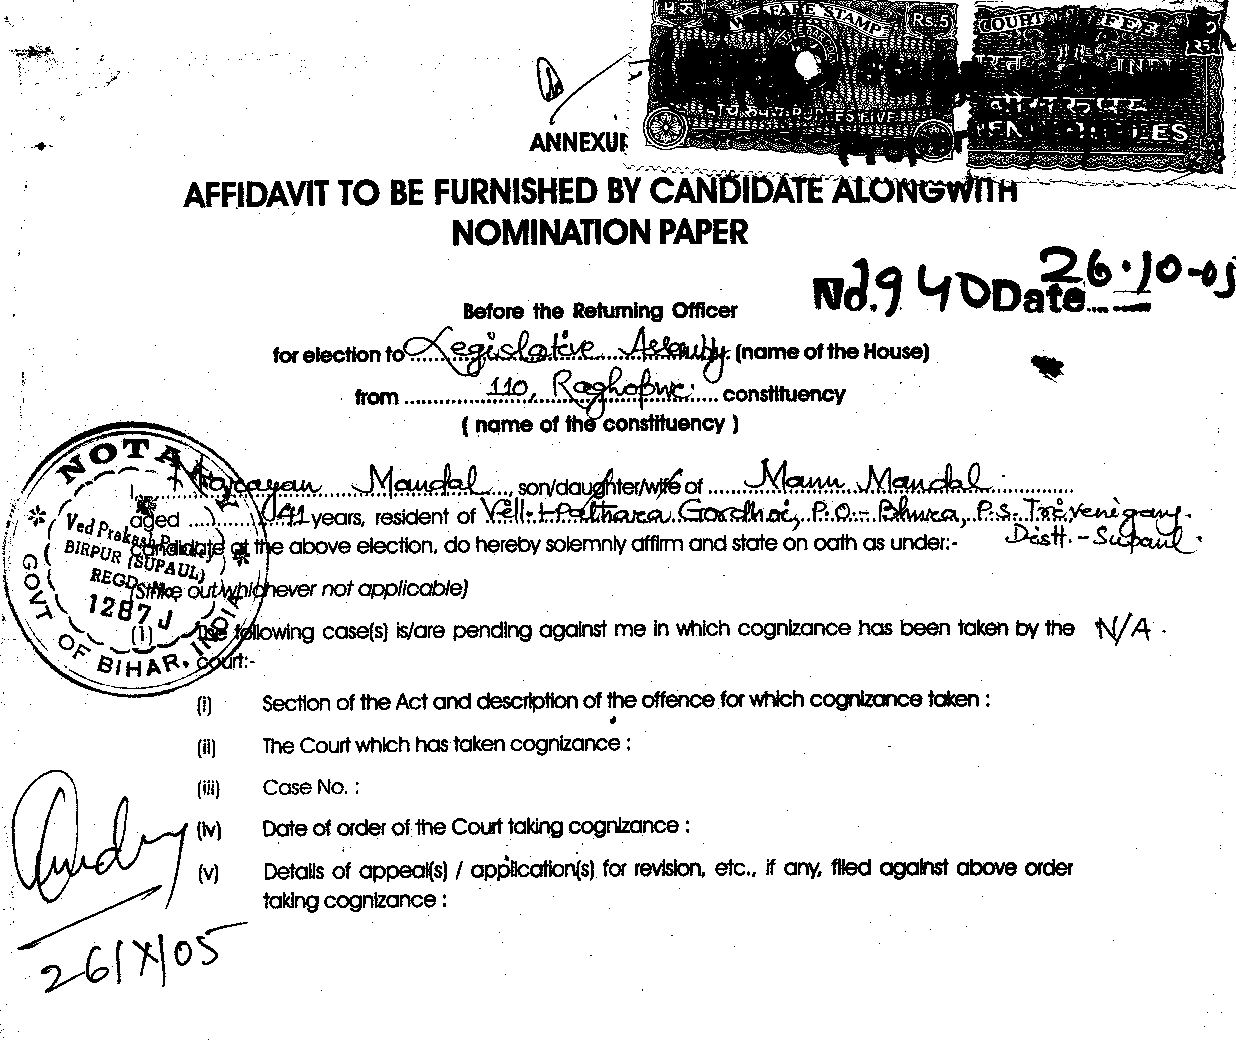 WELFARE STAMP
Rs.5
COURT FEE
RUPEES FIVE
ANNEXU
AFFIDAVIT TO BE FURNISHED BY CANDIDATE ALONGWITH
NOMINATION PAPER
No. 940 Date 26.10-05
Before the Returning Officer
for election to Legislative Assembly (name of the House)
from 110, constituency
( name of the constituency )
I, Narayan Mandal, son/daughter/wife of Mandal
aged 41 years, resident of P.O.- P.S. Triveniganj.
Distt.- Supaul.
Candidate at the above election, do hereby solemnly affirm and state on oath as under:-
(Strike out whichever not applicable)
(1) The following case(s) is/are pending against me in which cognizance has been taken by the N/A.
court:-
(i) Section of the Act and description of the offence for which cognizance taken :
(ii) The Court which has taken cognizance :
(iii) Case No. :
(iv) Date of order of the Court taking cognizance :
(v) Details of appeal(s) / application(s) for revision, etc., if any, filed against above order
taking cognizance :
NOTARY
Ved Prakash
BIRPUR (SUPAUL)
REGD. No.
1287 J
GOVT OF BIHAR, INDIA
26/X/05